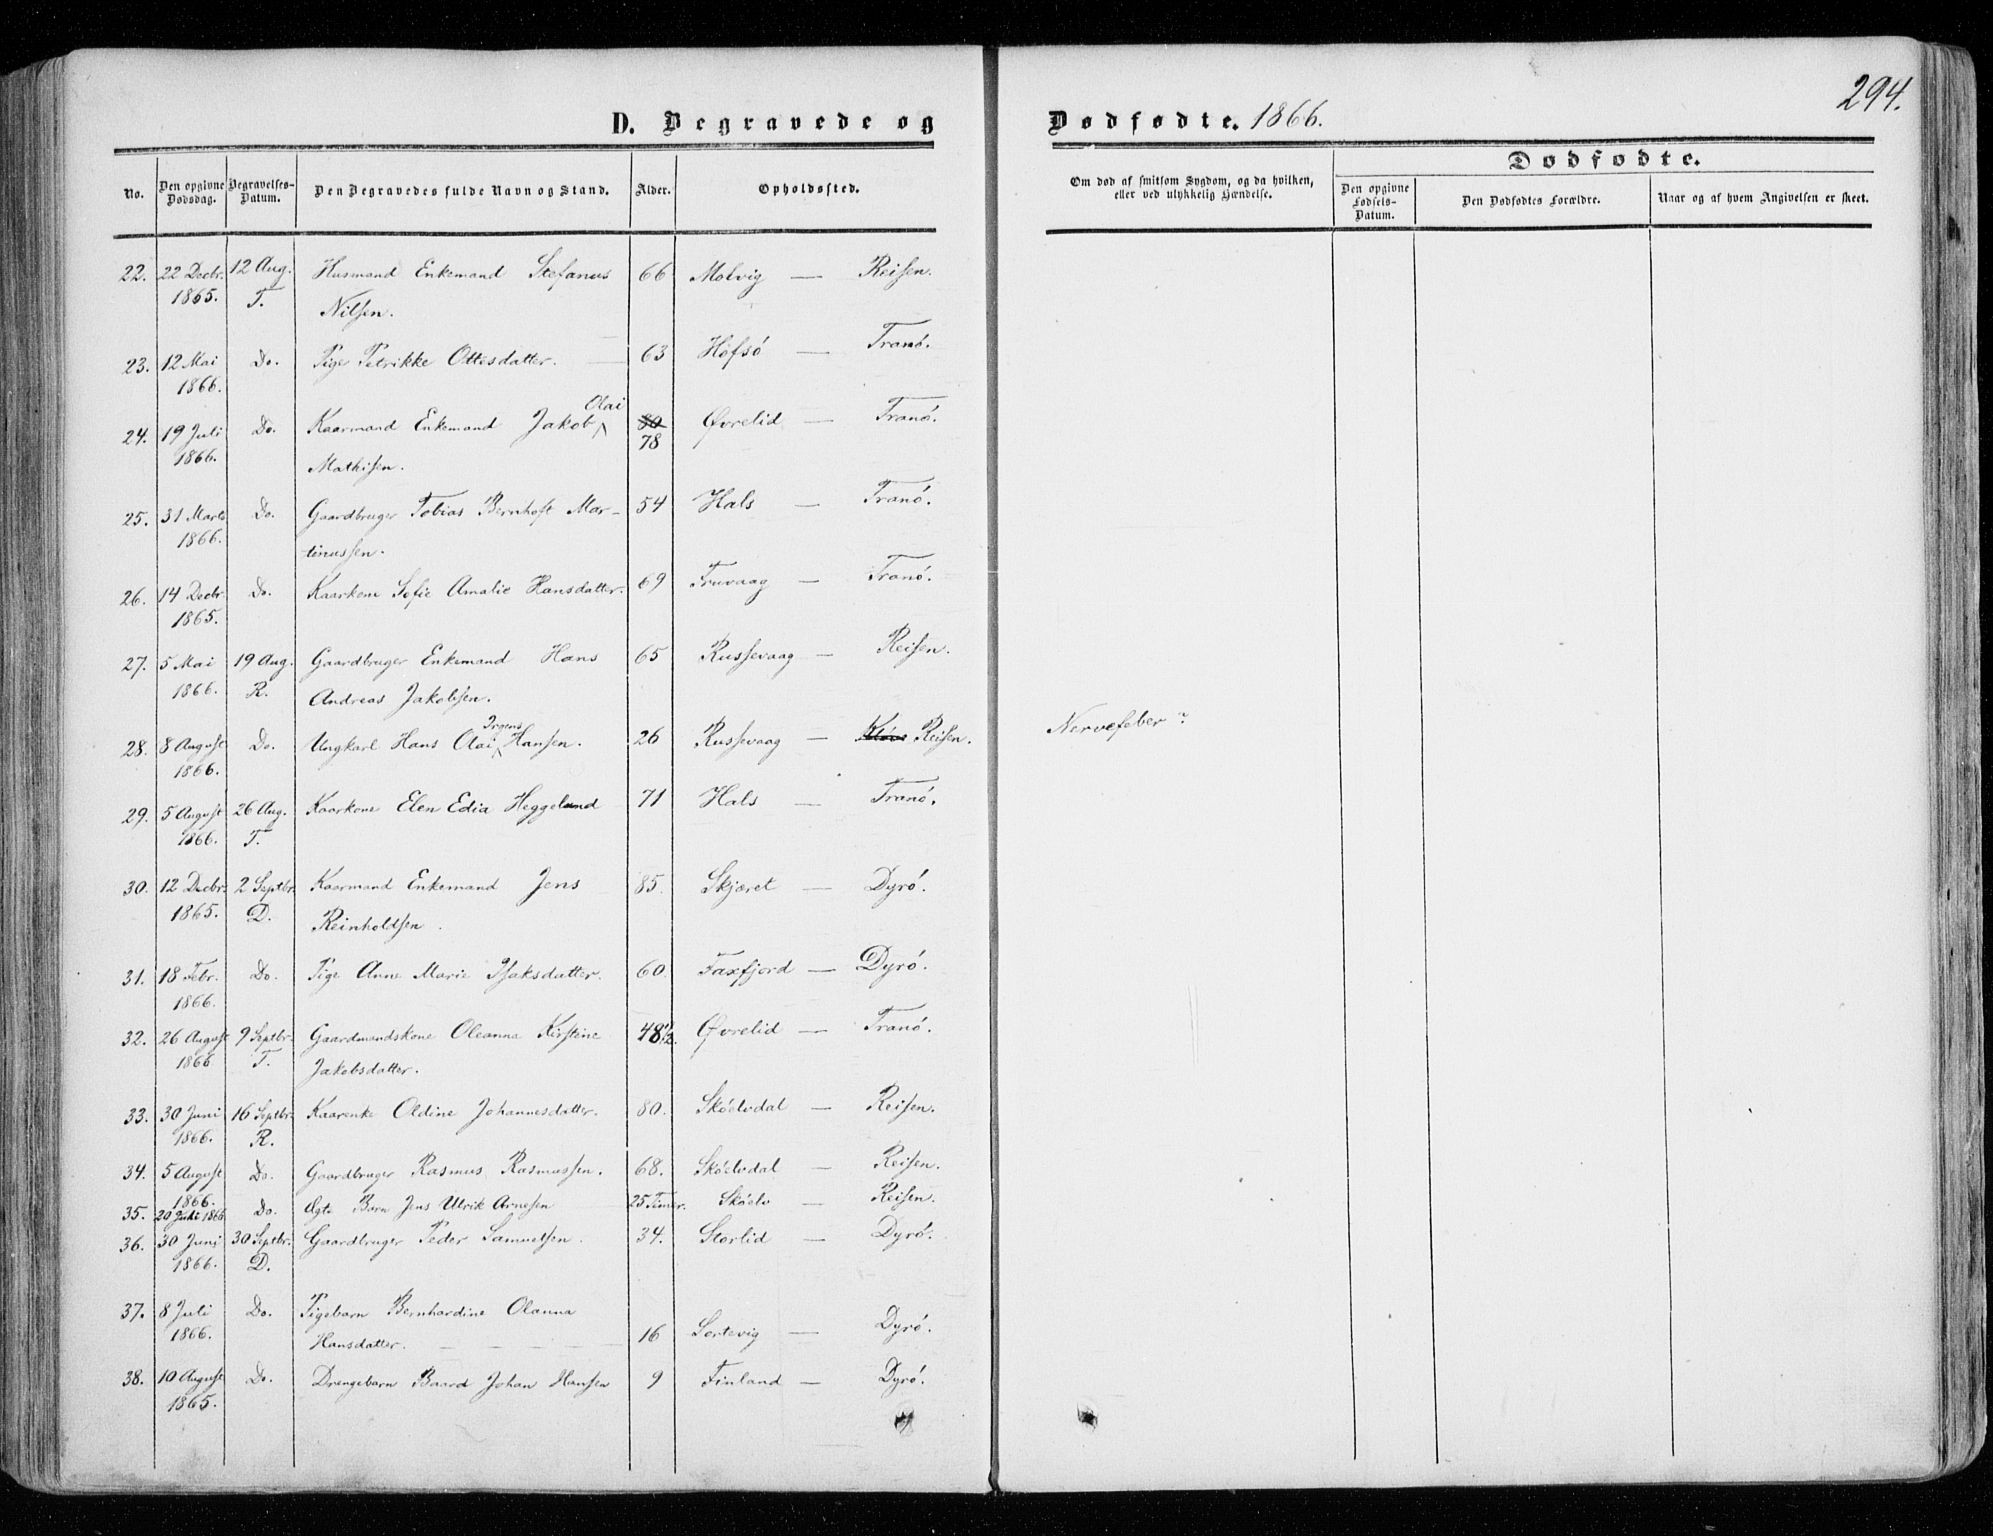 294.
D. Begravede og Dødfødte. 1866.
Dødfødte.
No. Den opgivne Dødsdag. Begravelses-Datum. Den Begravedes fulde Navn og Stand. Alder. Opholdssted. Om død af smitsom Sygdom, og da hvilken, eller ved ulykkelig Hændelse. Den opgivne Fødsels-Datum. Den Dødfødtes Forældre. Naar og af hvem Angivelsen er skeet.
22. 22 Decbr. 12 Aug. Husmand Enkemand Stefanus 66 Molvig — Reisen.
1865. T. Nilsen.
23. 12 Mai Do. Pige Petrikke Ottesdatter. 63 Hofsö — Tranö.
1866.
Olai
24. 19 Juli Do. Kaarmand Enkemand Jakob 80 Øvrelid — Tranö.
1866. Mathisen. 78
25. 31 Marts Do. Gaardbruger Tobias Bernhoft Mar- 54 Hals — Tranö.
1866. tinussen.
26. 14 Decbr. Do. Kaarkone Sofie Amalie Hansdatter. 69 Truvaag — Tranö.
1865.
27. 5 Mai 19 Aug. Gaardbruger Enkemand Hans 65 Russevaag — Reisen.
1866. R. Andreas Jakobsen.
Irgens
28. 8 August Do. Ungkarl Hans Olai Hansen. 26 Russevaag — Reisen. Nervefeber?
1866.
29. 5 August 26 Aug. Kaarkone Elen Edia Heggelund 71 Hals — Tranö.
1866. T.
30. 12 Decbr. 2 Septbr. Kaarmand Enkemand Jens 85. Skjæret — Dyrö.
1865. D. Reinholdsen.
31. 18 Febr. Do. Pige Anne Marie Isaksdatter. 60. Faxfjord — Dyrö.
1866.
32. 26 August 9 Septbr. Gaardmandskone Oleanna Kirstine 48½. Øvrelid — Tranö.
1866 T. Jakobsdatter.
33. 30 Juni 16 Septbr. Kaarenke Oldine Johannesdatter. 80. Sköelvdal — Reisen.
1866. R.
34. 5 August Do. Gaardbruger Rasmus Rasmussen. 68. Sköelvdal — Reisen.
1866.
35. 20 Juli 1866 Do. Ægte Barn Jens Ulrik Arnesen 25 Timer. Sköelv — Reisen.
36. 30 Juni 30 Septbr. Gaardbruger Peder Samuelsen. 34. Storlid — Dyrö.
1866. D.
37. 8 Juli Do. Pigebarn Bernhardine Olanna
1866. Hansdatter. 16 Sortevig — Dyrö.
38. 10 August Do. Drengebarn Baard Johan Hansen 9 Finland — Dyrö.
1865.